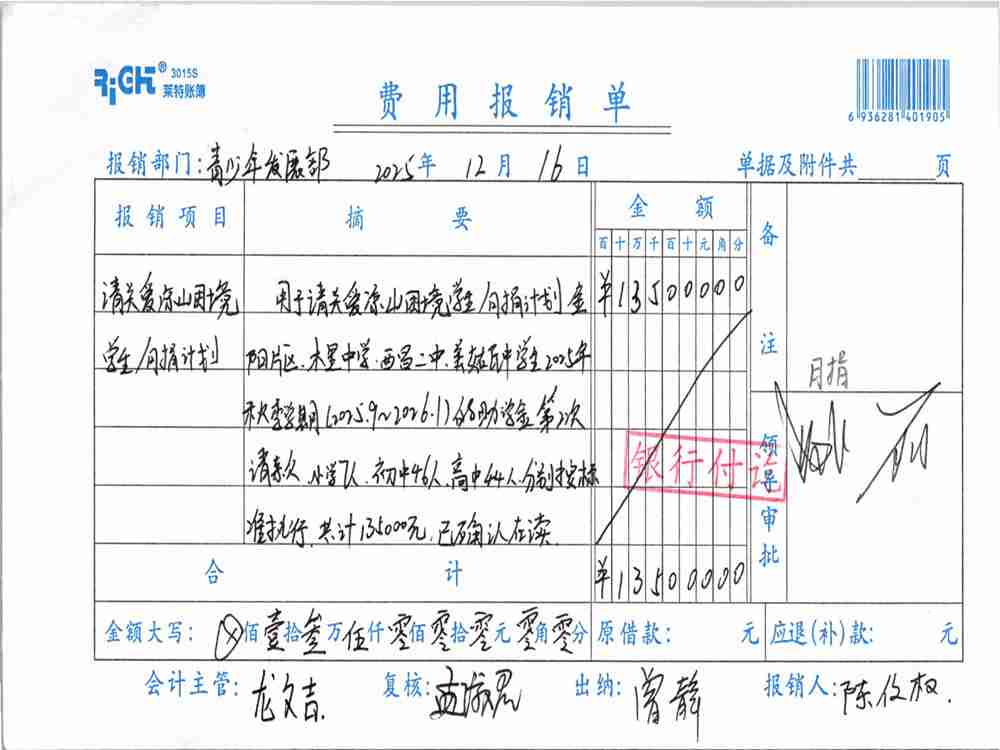 RiGHT® 3015S
莱特账簿
费用报销单
6 936281 401905
报销部门：青少年发展部 2025年 12月 16日 单据及附件共 页
报销项目 摘要 金额 备注
百 十 万 千 百 十 元 角 分
请关爱凉山困境 用于请关爱凉山困境学生月捐计划 ¥13500000
学生月捐计划 阳片区、木里中学、西昌二中、美姑民中学生2025年
月捐
秋季学期(2025.9~2026.1)的助学金第2次
小学7人、初中46人、高中44人、分别按标
银行付讫
领导审批
准执行,共计135000元,已确认在读
合计 ¥13500000
金额大写：ⓧ佰壹拾叁万伍仟零佰零拾零元零角零分 原借款： 元 应退(补)款： 元
会计主管：龙文吉 复核： 出纳：曾静 报销人：陈